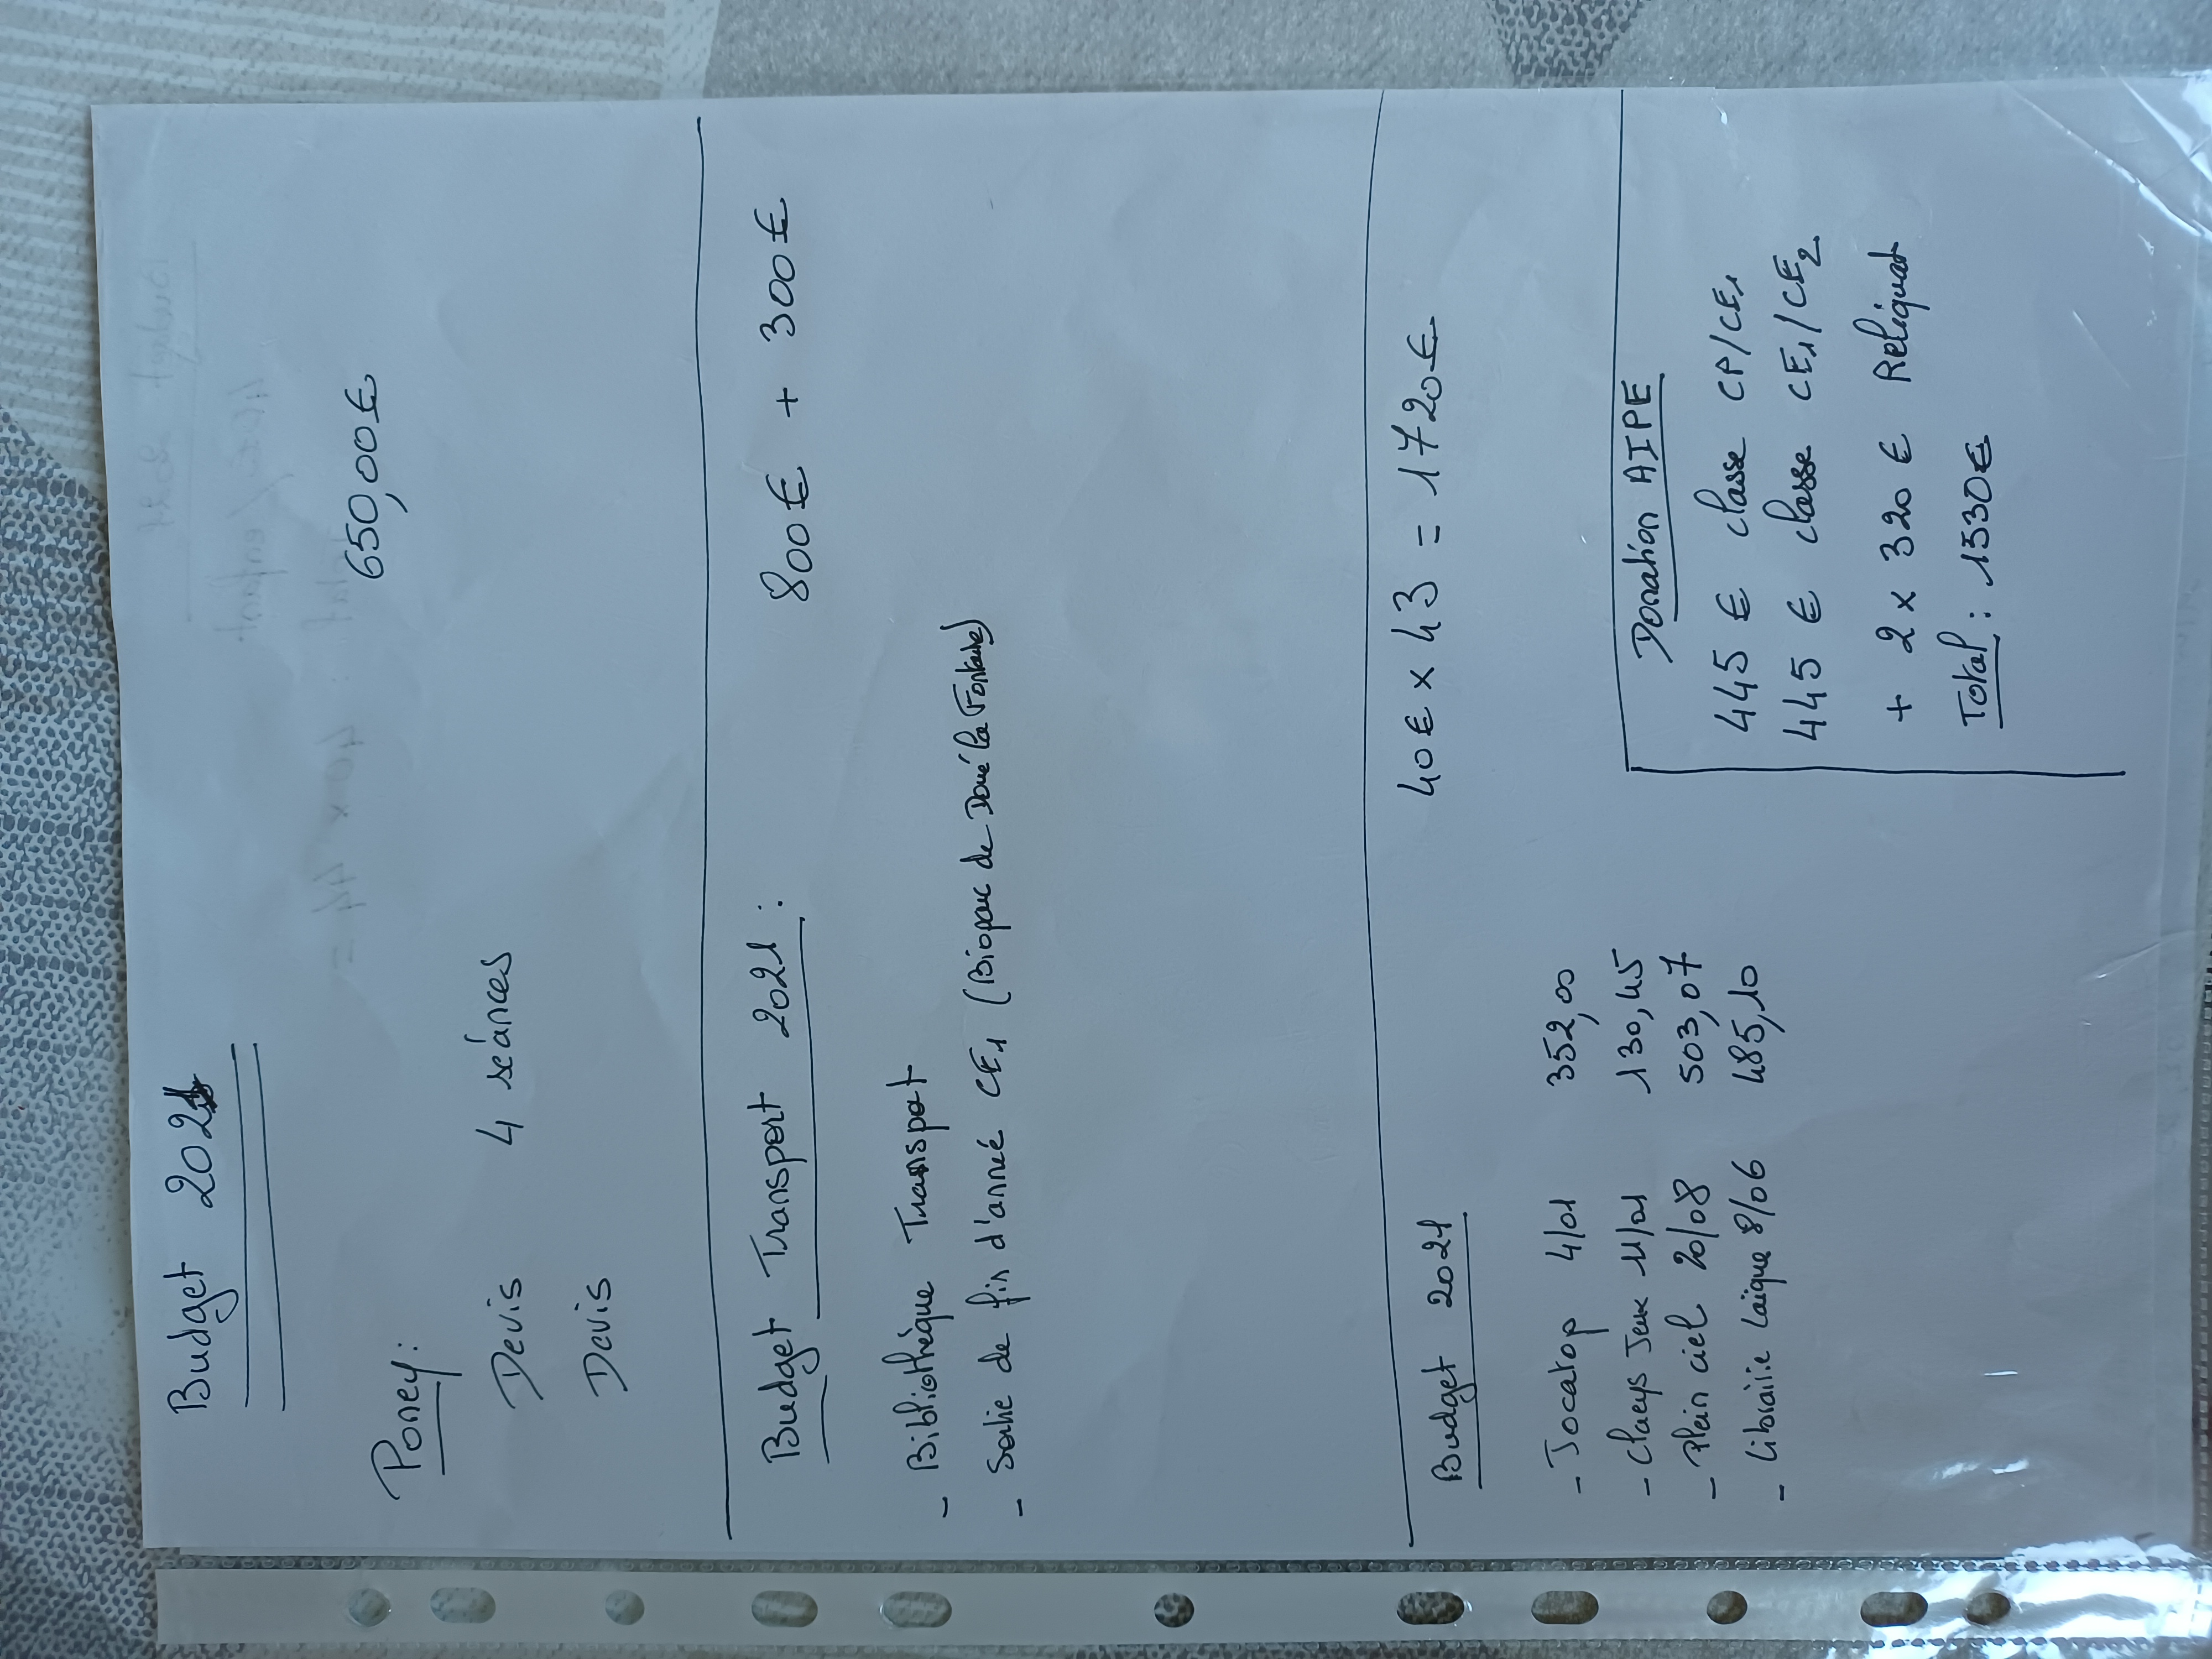 Budget 2021
Poney : 650,00€
Devis 4 séances
Devis
Budget Transport 2021 : 800€ + 300€
- Bibliothèque Transport
- Sortie de fin d'anné CE1 (Bioparc de Doué la Fontaine)
Budget 2021 40€ x 43 = 1720€
- Jocatop 4/01 352,00
- Claeys Jeux 11/01 130,45
- Plein ciel 20/08 503,07
- Librairie Laïque 8/06 485,10
Donation AIPE
445 € classe CP/CE1
445 € classe CE1/CE2
+ 2 x 320 € Reliquat
Total : 1530€